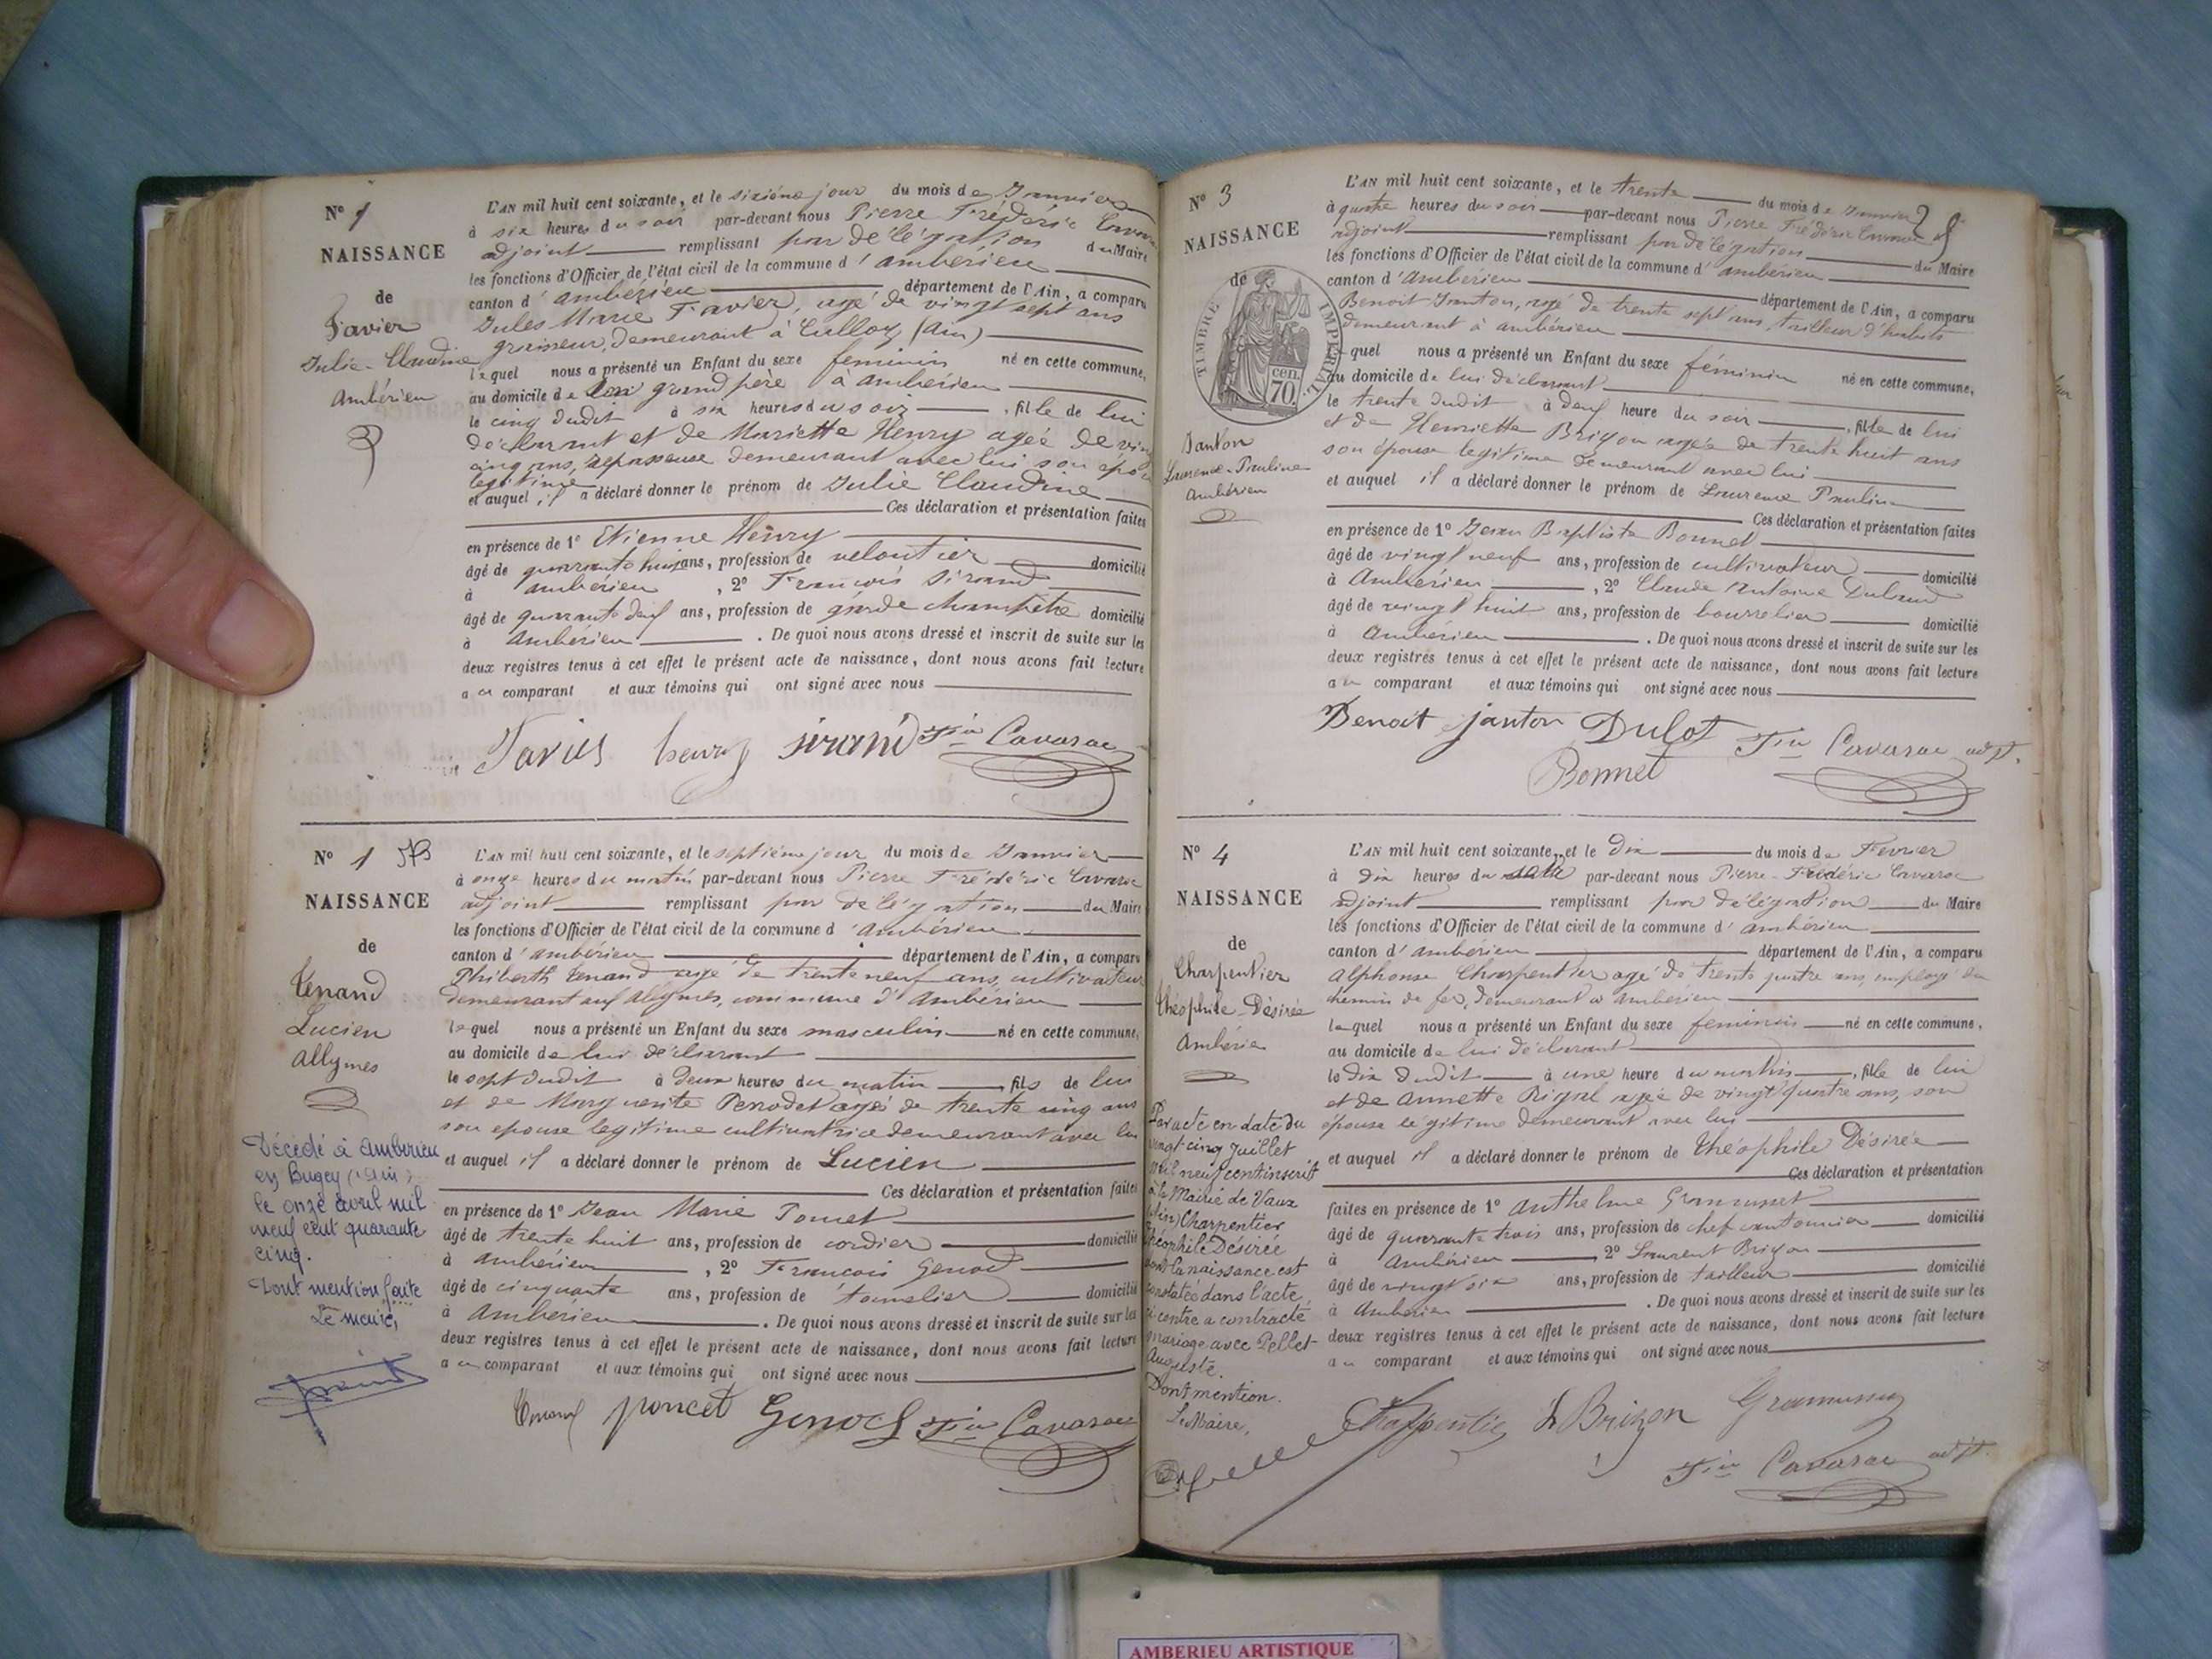 N° 1
NAISSANCE
de
Favier
Julie-Claudine
Ambérieu
L'AN mil huit cent soixante, et le sixième jour du mois de Janvier
à six heures du soir par-devant nous Pierre Frédéric
adjoint remplissant par délégation du Maire
les fonctions d'Officier de l'état civil de la commune d'ambérieu
canton d'ambérieu département de l'Ain, a comparu
Jules Marie Favier, agé de vingt sept ans
demeurant à Culloz (Ain)
lequel nous a présenté un Enfant du sexe feminin né en cette commune,
au domicile de grand père à ambérieu
le cinq dudit à six heures du soir, fille de lui
déclarant et de Mariette Henry agée de
cinq ans, repasseuse demeurant avec lui son
légitime
et auquel il a déclaré donner le prénom de Julie Claudine
Ces déclaration et présentation faites
en présence de 1° Etienne Henry
âgé de quarante huit ans, profession de veloutier domicilié
à ambérieu, 2° François Sirand
âgé de quarante deux ans, profession de garde champêtre domicilié
à Ambérieu. De quoi nous avons dressé et inscrit de suite sur les
deux registres tenus à cet effet le présent acte de naissance, dont nous avons fait lecture
au comparant et aux témoins qui ont signé avec nous
Favier henry sirand Fic Cavaroc
N° 1
NAISSANCE
de
Tenand
Lucien
allymes
Décédé à Ambérieu
en Bugey (Ain)
le onze avril mil
neuf cent quarante
cinq.
Dont mention faite
Le maire,
L'AN mil huit cent soixante, et le septième jour du mois de Janvier
à onze heures du matin par-devant nous Pierre Frédéric Cavaroc
adjoint remplissant par délégation du Maire
les fonctions d'Officier de l'état civil de la commune d'ambérieu
canton d'ambérieu département de l'Ain, a comparu
Philberth Tenand agé de trente neuf ans, cultivateur
demeurant aux allymes, commune d'Ambérieu
lequel nous a présenté un Enfant du sexe masculin né en cette commune,
au domicile de lui déclarant
le sept dudit à deux heures du matin, fils de lui
et de Marguerite agée de trente cinq ans
son epouse legitime cultivatrice demeurant avec lui
et auquel il a déclaré donner le prénom de Lucien
Ces déclaration et présentation faites
en présence de 1° Jean Marie Poncet
âgé de trente huit ans, profession de cordier domicilié
à ambérieu, 2° François Genod
âgé de cinquante ans, profession de tonnelier domicilié
à Ambérieu. De quoi nous avons dressé et inscrit de suite sur les
deux registres tenus à cet effet le présent acte de naissance, dont nous avons fait lecture
au comparant et aux témoins qui ont signé avec nous
Tenand poncet Genod Fic Cavaroc
N° 3
NAISSANCE
de
TIMBRE IMPERIAL
70 cen.
Janton
Laurence-Pauline
Ambérieu
L'AN mil huit cent soixante, et le trente du mois de Janvier
à quatre heures du soir par-devant nous Pierre Frédéric Cavaroc
adjoint remplissant par délégation du Maire
les fonctions d'Officier de l'état civil de la commune d'ambérieu
canton d'ambérieu département de l'Ain, a comparu
Benoit Janton, agé de trente sept ans, tailleur d'habits
demeurant à ambérieu
lequel nous a présenté un Enfant du sexe féminin né en cette commune,
au domicile de lui déclarant
le trente dudit à deux heure du soir, fille de lui
et de Henriette Brizon agée de trente huit ans
son épouse legitime demeurant avec lui
et auquel il a déclaré donner le prénom de Laurence Pauline
Ces déclaration et présentation faites
en présence de 1° Jean Baptiste Bonnet
âgé de vingt neuf ans, profession de cultivateur domicilié
à Ambérieu, 2° Claude Antoine
âgé de vingt huit ans, profession de bourrelier domicilié
à Ambérieu. De quoi nous avons dressé et inscrit de suite sur les
deux registres tenus à cet effet le présent acte de naissance, dont nous avons fait lecture
au comparant et aux témoins qui ont signé avec nous
Benoit janton Dulot Fic Cavaroc adjt.
Bonnet
N° 4
NAISSANCE
de
Charpentier
Théophile-Désirée
Ambérieu
Par acte en date du
vingt cinq Juillet
mil neuf cent inscrit
à la Mairie de Vaux
(Ain) Charpentier
Théophile Désirée
dont la naissance est
constatée dans l'acte
ci contre a contracté
mariage avec Pellet
Auguste.
Dont mention.
Le Maire,
L'AN mil huit cent soixante, et le dix du mois de Fevrier
à dix heures du par-devant nous Pierre-Frédéric Cavaroc
adjoint remplissant par délégation du Maire
les fonctions d'Officier de l'état civil de la commune d'ambérieu
canton d'ambérieu département de l'Ain, a comparu
Alphonse Charpentier agé de trente quatre ans, employé du
chemin de fer, demeurant à ambérieu
lequel nous a présenté un Enfant du sexe feminin né en cette commune,
au domicile de lui déclarant
le dix dudit à une heure du matin, fille de lui
et de Annette Rigal agée de vingt quatre ans, son
épouse légitime demeurant avec lui
et auquel il a déclaré donner le prénom de Théophile Désirée
Ces déclaration et présentation
faites en présence de 1° Anthelme
âgé de quarante trois ans, profession de chef cantonnier domicilié
à Ambérieu, 2° Laurent Brizon
âgé de vingt six ans, profession de tailleur domicilié
à Ambérieu. De quoi nous avons dressé et inscrit de suite sur les
deux registres tenus à cet effet le présent acte de naissance, dont nous avons fait lecture
au comparant et aux témoins qui ont signé avec nous
Charpentier L Brizon
Fic Cavaroc adjt.
AMBERIEU ARTISTIQUE